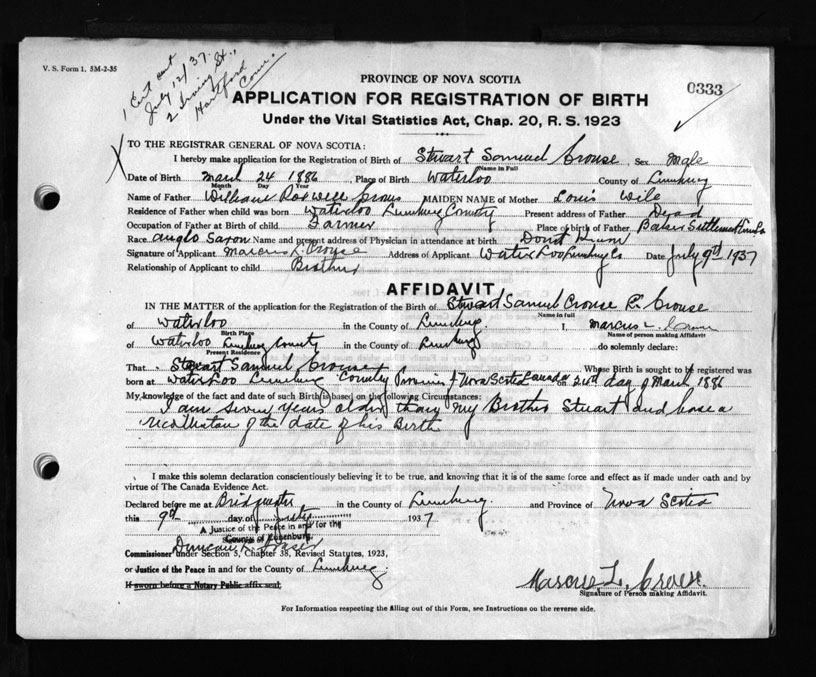 V. S. Form 1, 5M-2-35
1 Cert sent
July 12/37.
2 Irving St.,
Hartford
Conn.
PROVINCE OF NOVA SCOTIA
0333
APPLICATION FOR REGISTRATION OF BIRTH
Under the Vital Statistics Act, Chap. 20, R. S. 1923
TO THE REGISTRAR GENERAL OF NOVA SCOTIA:
I hereby make application for the Registration of Birth of Stuart Samuel Crouse Sex Male
Name in Full
Date of Birth March 24 1886 Place of Birth Waterloo County of Lunenburg
Month Day Year
Name of Father William Crous MAIDEN NAME of Mother Louis Wile
Residence of Father when child was born Waterloo Lunenburg County Present address of Father Dead
Occupation of Father at Birth of child Farmer Place of birth of Father Baker Settlement
Race Anglo Saxon Name and present address of Physician in attendance at birth Dont
Signature of Applicant Marcus L. Crouse Address of Applicant Waterloo Lunenburg Co Date July 9th 1937
Relationship of Applicant to child Brother
AFFIDAVIT
IN THE MATTER of the application for the Registration of the Birth of Stuart Samuel Crouse Crouse
Name in full
of Waterloo in the County of Lunenburg. I, Marcus L. Crouse
Birth Place Name of person making Affidavit
of Waterloo Lunenburg County in the County of Lunenburg do solemnly declare:
Present Residence
That Stuart Samuel Crouse Whose Birth is sought to be registered was
born at Waterloo Lunenburg County Province of Nova Scotia Canada on 24th day of March 1886
My knowledge of the fact and date of such Birth is based on the following Circumstances:
I am seven years older than my Brother Stuart and have a
recollection of the date of his Birth
I make this solemn declaration conscientiously believing it to be true, and knowing that it is of the same force and effect as if made under oath and by
virtue of The Canada Evidence Act.
Declared before me at Bridgewater in the County of Lunenburg. and Province of Nova Scotia
this 9th day of July 1937
A Justice of the Peace in and for the
County of Lunenburg.
Duncan Fraser
Commissioner under Section 5, Chapter 38, Revised Statutes, 1923,
or Justice of the Peace in and for the County of Lunenburg.
If sworn before a Notary Public affix seal.
Marcus L. Crouse.
Signature of Person making Affidavit.
For Information respecting the filling out of this Form, see Instructions on the reverse side.